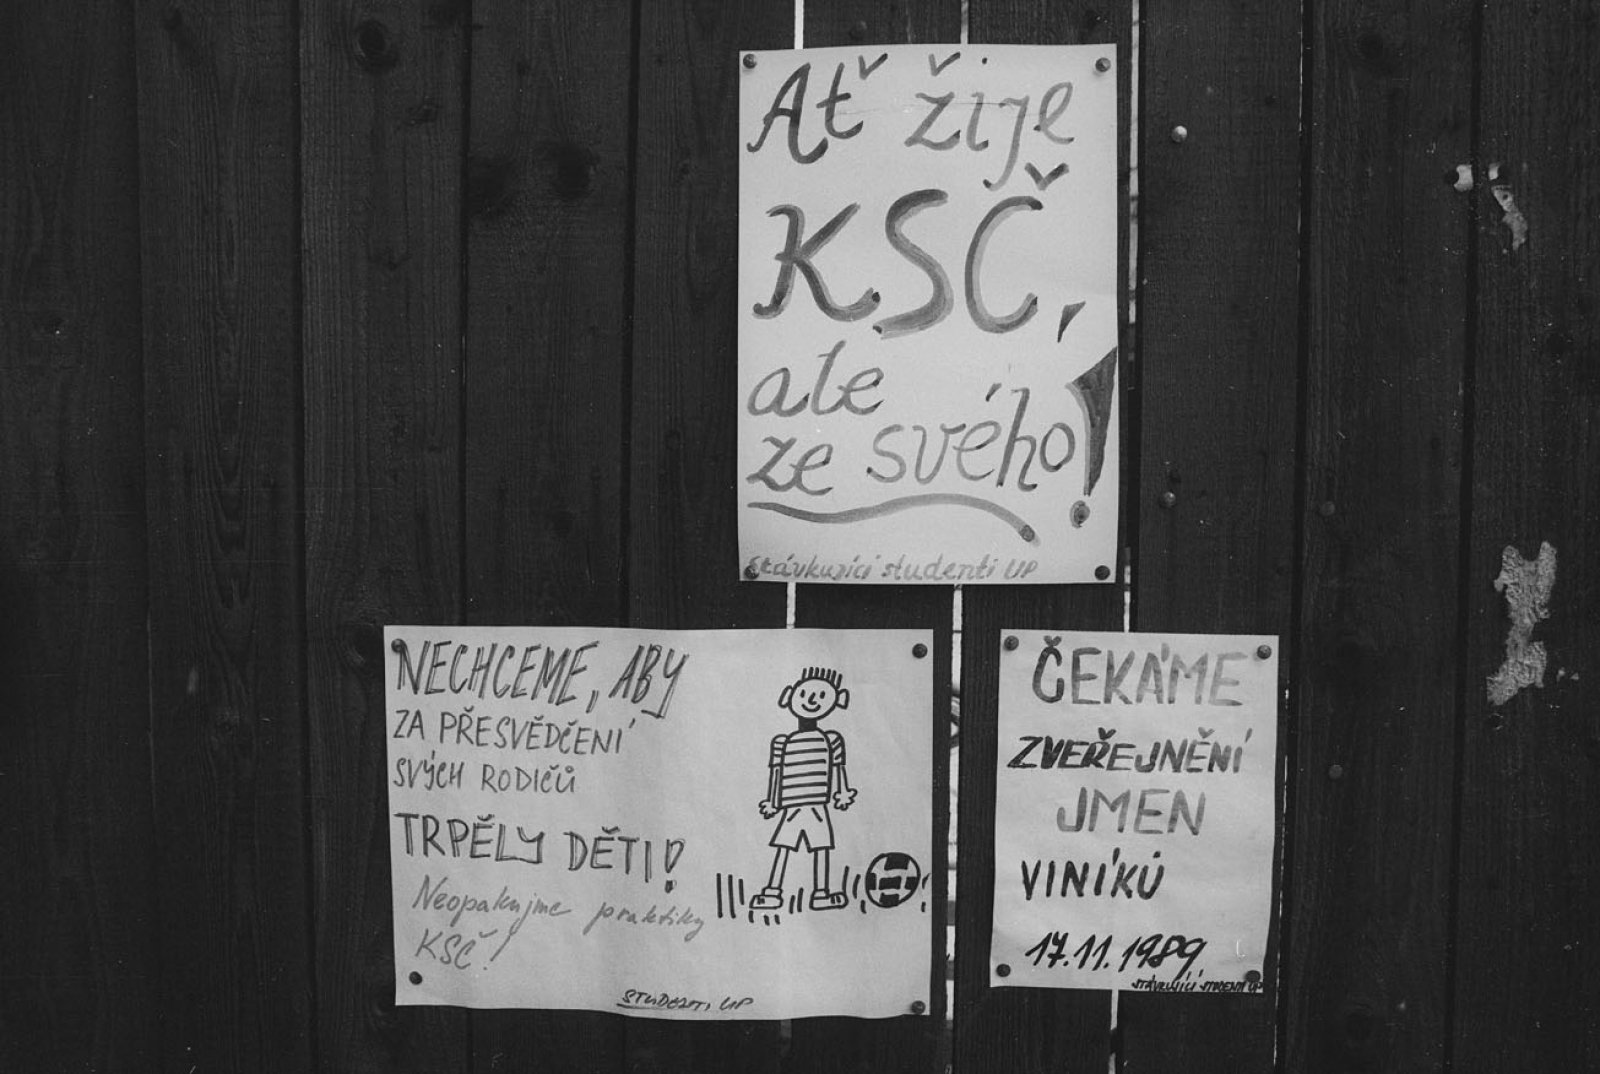 Ať žije
KSČ,
ale
ze svého!
Stávkující studenti UP
NECHCEME, ABY
ZA PŘESVĚDČENÍ
SVÝCH RODIČŮ
TRPĚLY DĚTI!
Neopakujme praktiky
KSČ!
STUDENTI UP
ČEKÁME
ZVEŘEJNĚNÍ
JMEN
VINÍKŮ
17.11.1989
STÁVKUJÍCÍ STUDENTI UP